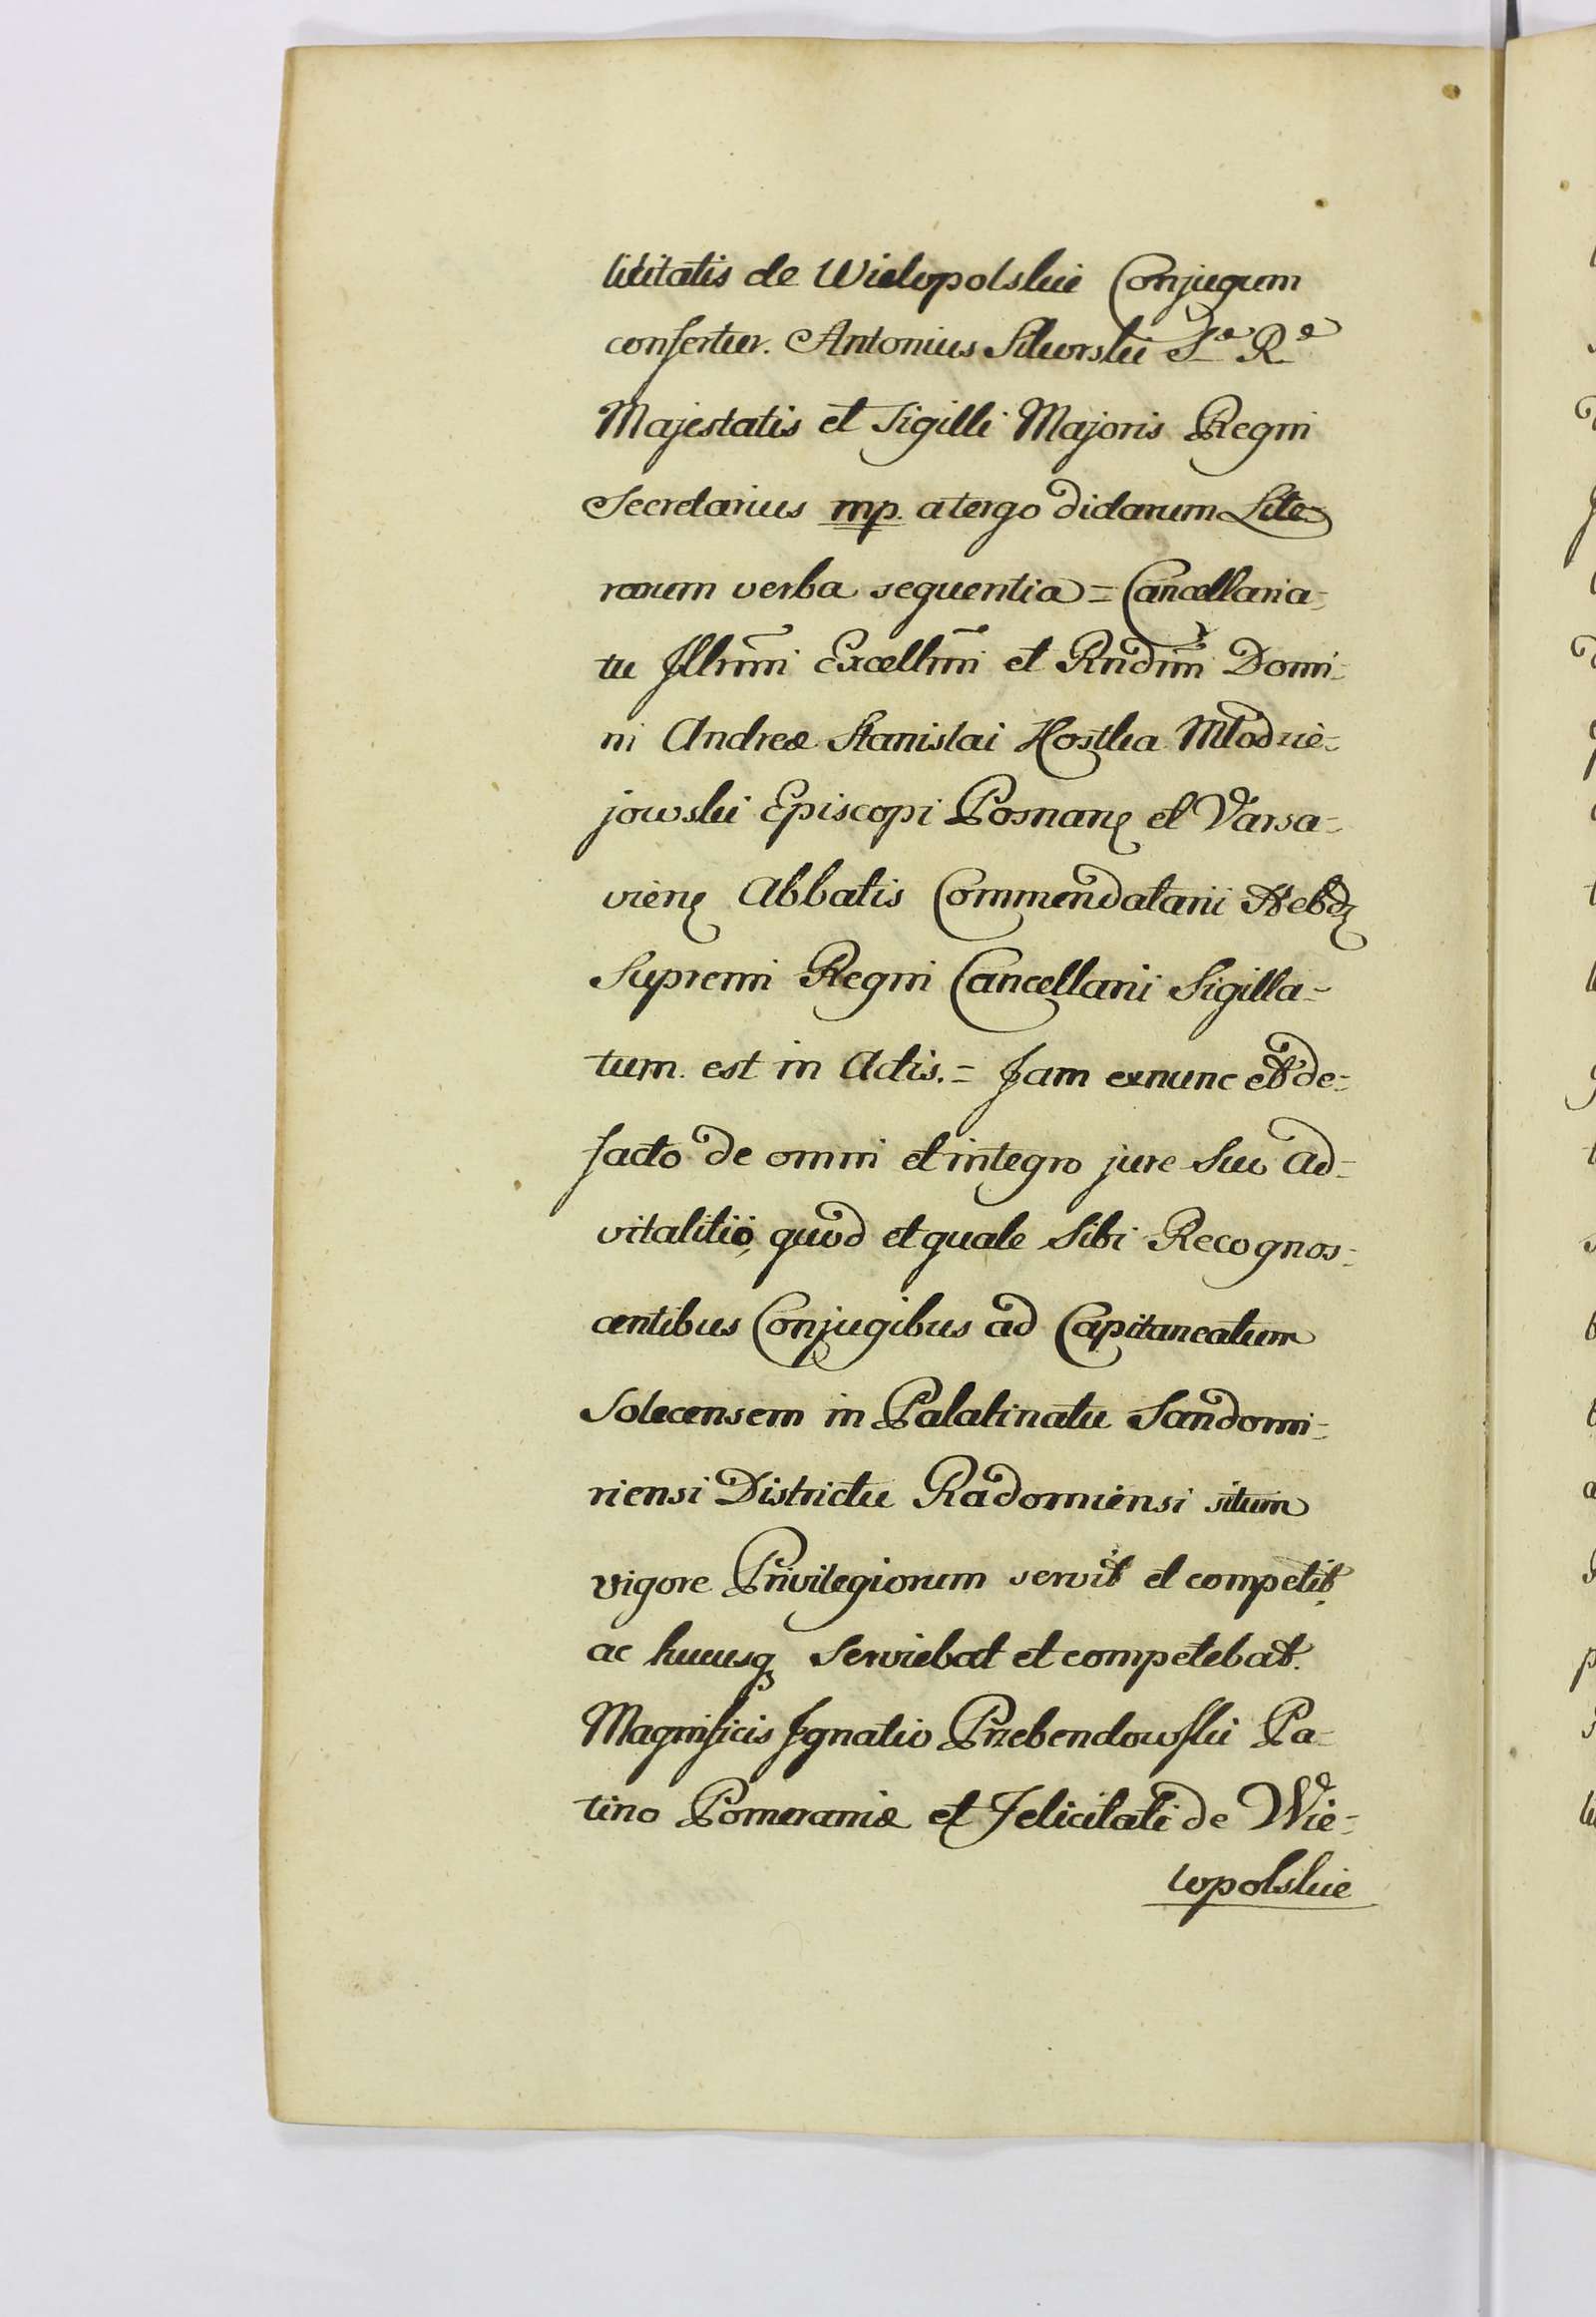 licitatis de Wielopolskie Conjugum
confertur. Antonius Sikorski Sæ Ræ
Majestatis et Sigilli Majoris Regni
Secretarius mp. a tergo dictarum Lite-
rarum verba sequentia = Cancellaria-
tu Illmi Excellmi et Rndmi Domi-
ni Andreæ Stanislai Kostka Młodzie-
jowski Episcopi Posnanę et Varsa-
vienę Abbatis Commendatarii Hebdę
Supremi Regni Cancellarii Sigilla-
tum est in Actis. = Jam exnunc et de-
facto de omni et integro jure Suo ad-
vitalitio, quod et quale Sibi Recognos-
centibus Conjugibus ad Capitaneatum
Solecensem in Palatinatu Sandomi-
riensi Districtu Radomiensi situm
vigore Privilegiorum servit et competit,
ac hucusq Serviebat et competebat.
Magnificis Ignatio Przebendowski Pa-
tino Pomeraniæ et Felicitati de Wie-
lopolskie